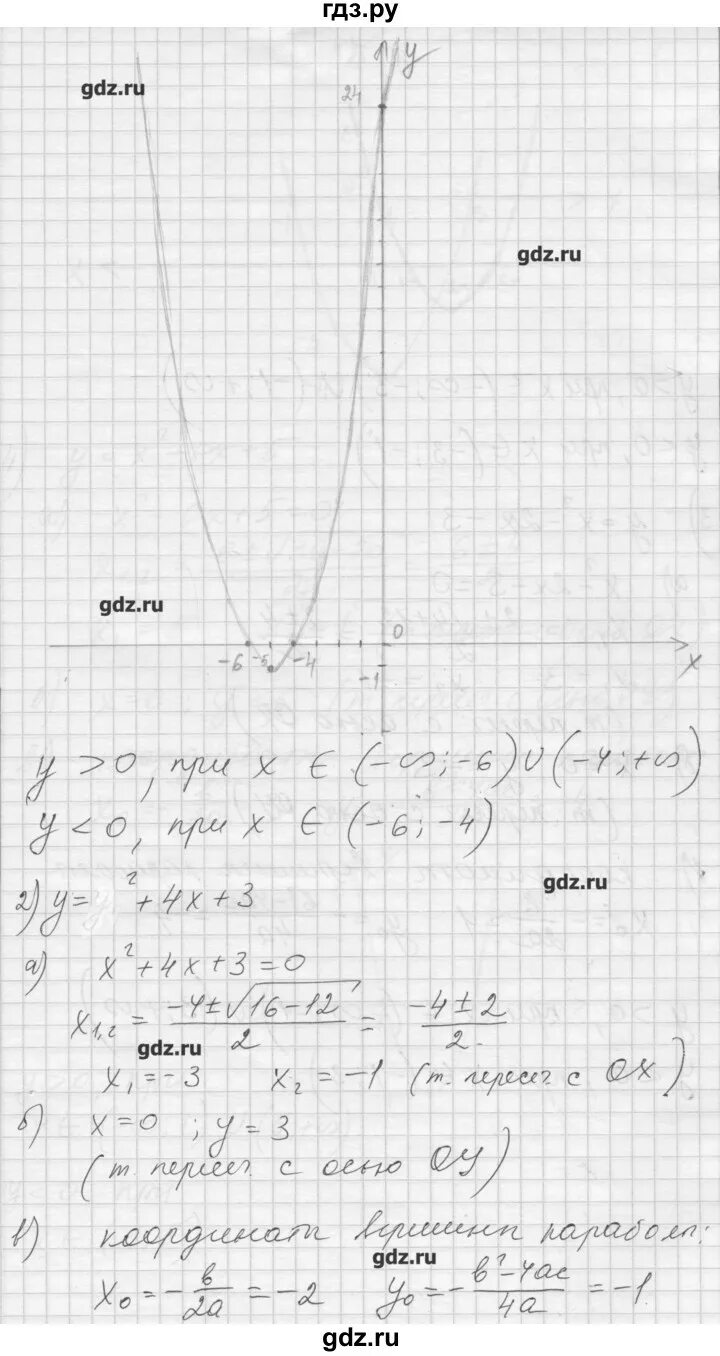 гдз.ру
y
gdz.ru
24
gdz.ru
gdz.ru
0
-6 -5 -4
-1
x
y > 0, при x ∈ (-∞; -6) ∪ (-4; +∞)
y < 0, при x ∈ (-6; -4)
gdz.ru
2) y = x² + 4x + 3
а) x² + 4x + 3 = 0
x₁,₂ = (-4 ± √(16-12))/2 = (-4 ± 2)/2.
gdz.ru
x₁ = -3 x₂ = -1 (т. пересеч. с OX)
б) x = 0 ; y = 3
(т. пересеч. с осью OY)
в) координаты вершины параболы:
gdz.ru
x₀ = -b/2a = -2 y₀ = -(b²-4ac)/4a = -1.
gdz.ru